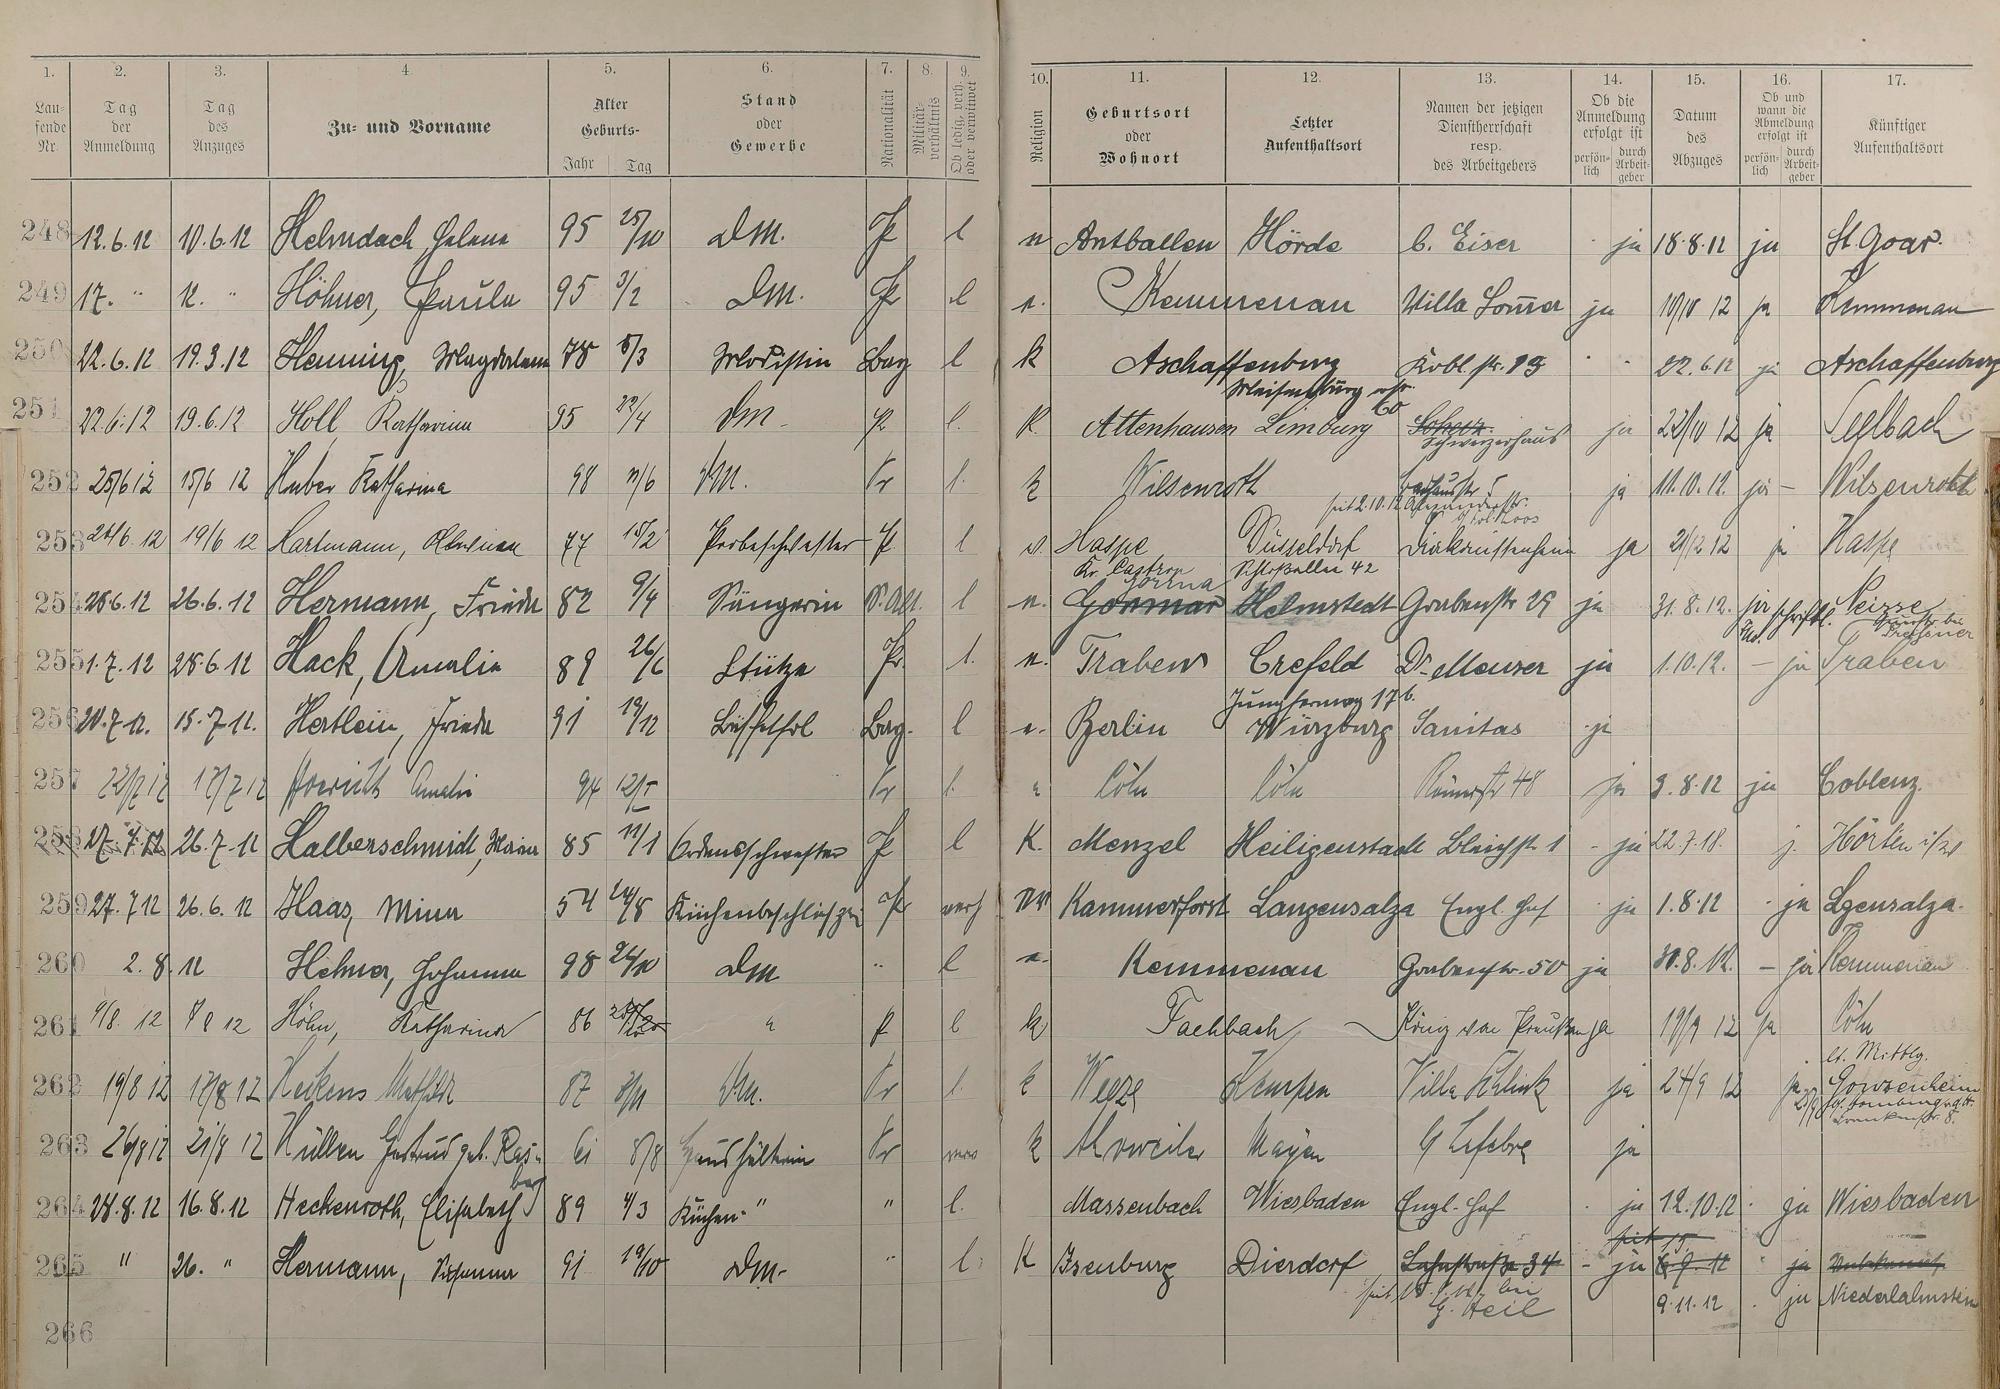 1. 2. 3. 4. 5. 6. 7. 8. 9. 10. 11. 12. 13. 14. 15. 16. 17.
Lau-fende Nr. Tag der Anmeldung Tag des Anzuges Zu- und Vorname Alter Geburts- Jahr Tag Stand oder Gewerbe Nationalität Militär-verhältnis Ob ledig, verh. oder verwitwet Religion Geburtsort oder Wohnort Letzter Aufenthaltsort Namen der jetzigen Dienstherrschaft resp. des Arbeitgebers Ob die Anmeldung erfolgt ist persön-lich durch Arbeit-geber Datum des Abzuges Ob und wann die Abmeldung erfolgt ist persön-lich durch Arbeit-geber Künftiger Aufenthaltsort
248 12.6.12 10.6.12 Helmdach Helene 95 25/10 DM. Pr l Antballen Hörde C. Eiser ja 18.8.12 ja St. Goar.
249 17. " 12. " Höhner, Paula 95 3/2 DM. Pr l e. Kemmenau Villa Sommer ja 10/10 12 ja Kemmenau
250 22.6.12 19.3.12 Henning, Magdalena 78 5/3 Modistin Bay l k Aschaffenburg Kobl. str. 13 22.6.12 ja Aschaffenburg
251 22.6.12 19.6.12 Holl Katharina 95 /4 DM - Pr l. K. Attenhausen Limburg Schweizerhaus ja 22/10 12 ja Seelbach
252 25/6 12 15/6 12 Huber Katharina 98 /6 DM. Pr l. k Wilsenroth ja 11.10.12. ja - Wilsenroth
seit 2.10.12
253 26/6 12 19/6 12 Hartmann, 77 15/2 Probeschwester Pr l Haspe Düsseldorf Diakonissenheim ja 21/12 12 ja Haspe
Schloßallee 42
254 28.6.12 26.6.12 Hermann, Frieda 82 9/4 Sängerin l Helmstedt Grabenstr 29 ja 31.8.12. ja schriftl. Neisse
255 1.7.12 28.6.12 Hack, Amalie 89 26/6 Stütze Pr. l. Traben Crefeld Dr. Meuser ja 1.10.12. - ja Traben
Jungfernweg 17 b.
256 20.7.12. 15.7.12. Hertlein, Frieda 91 19/12 Büffetfrl Bay. l e. Berlin Würzburg Sanitas ja
257 22/7 12 17/7 12 Amalie 94 12/5 Pr l. Cöln Cöln Römerstr 48 ja 3.8.12 ja Coblenz.
258 27.7.12 26.7.12 Halberschmidt, Maria 85 11/1 Ordensschwester Pr l K. Menzel Heiligenstadt Bleichstr 1 - ja 22.7.18. j.
259 27.7.12 26.6.12 Haas, Mina 54 24/8 Küchenbeschließerin Pr verh Kammerforst Langensalza Engl. Hof ja 1.8.12 ja Lgensalza.
260 2.8.12 Hehner, Johanna 98 24/10 DM " l e. Kemmenau Grabenstr. 50 ja 31.8.12. - ja Kemmenau
261 9/8. 12 12 Höhn, Katharina 86 " Pr l k Fachbach König von Preußen ja 19/9 12 ja Cöln
lt. Mittlg.
262 19/8 12 17/8 12 Heckens Mathilde 87 /11 DM. Pr l. k Weeze Kempen Villa Schlink ja 24/9 12 ja Gonzenheim
263 26/8 12 21/8 12 Hüllen Gertrud geb. 61 8/8 Haushälterin Pr k Ahrweiler Mayen G Lefebre ja
264 28.8.12 16.8.12 Heckenroth, Elisabeth 89 4/3 Küchen- " " l. Massenbach Wiesbaden Engl. Hof ja 12.10.12 ja Wiesbaden
265 " 26. " Hermann, Susanna 91 19/10 DM- " l. K Isenburg Dierdorf Lahnstraße 34 - ja 6.9.12 ja Unbekannt
G. Heil 9.11.12 ja Niederlahnstein
266